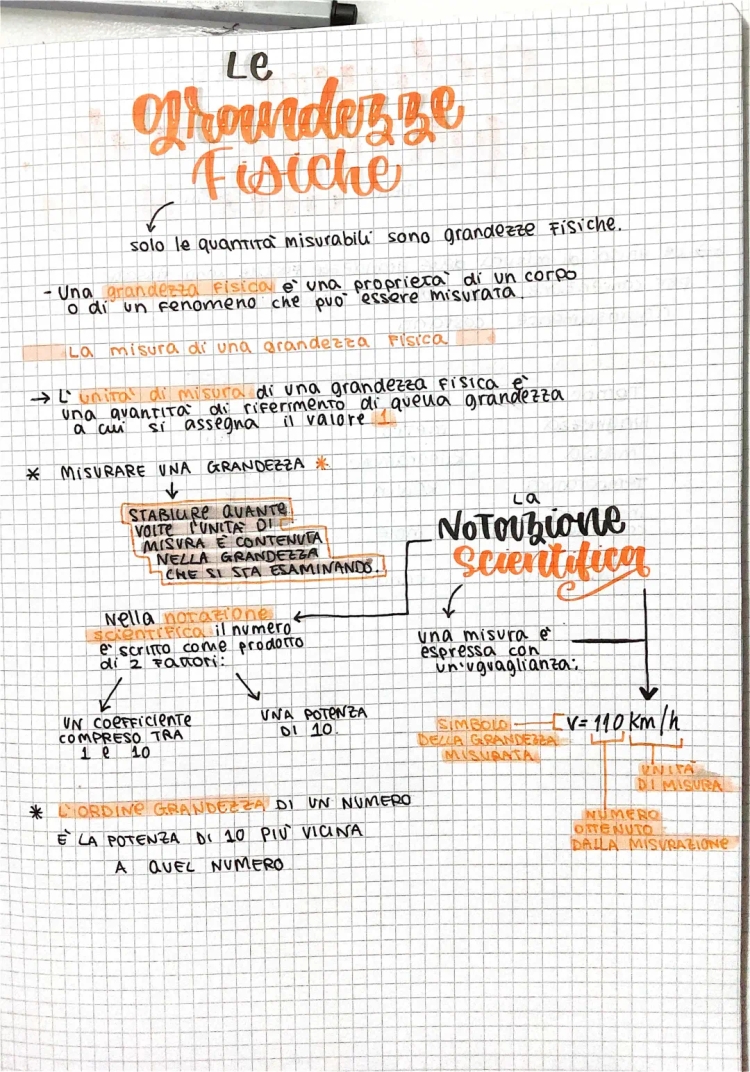 Le
grandezze
Fisiche
solo le quantità misurabili sono grandezze Fisiche.
- Una grandezza Fisica è una proprietà di un corpo
o di un Fenomeno che può essere misurata.
La misura di una grandezza Fisica
→ L'unità di misura di una grandezza Fisica è
una quantità di riferimento di quella grandezza
a cui si assegna il valore 1
* MISURARE UNA GRANDEZZA *
STABILIRE QUANTE
VOLTE L'UNITÀ DI
MISURA È CONTENUTA
NELLA GRANDEZZA
CHE SI STA ESAMINANDO.
La
Notazione
Scientifica
Nella notazione
scientifica il numero
è scritto come prodotto
di 2 Fattori:
UN COEFFICIENTE
COMPRESO TRA
1 e 10
UNA POTENZA
DI 10.
una misura è
espressa con
un'uguaglianza:
v=110 km/h
SIMBOLO
DELLA GRANDEZZA
MISURATA
UNITÀ
DI MISURA
NUMERO
OTTENUTO
DALLA MISURAZIONE
* L'ORDINE GRANDEZZA DI UN NUMERO
È LA POTENZA DI 10 PIÙ VICINA
A QUEL NUMERO